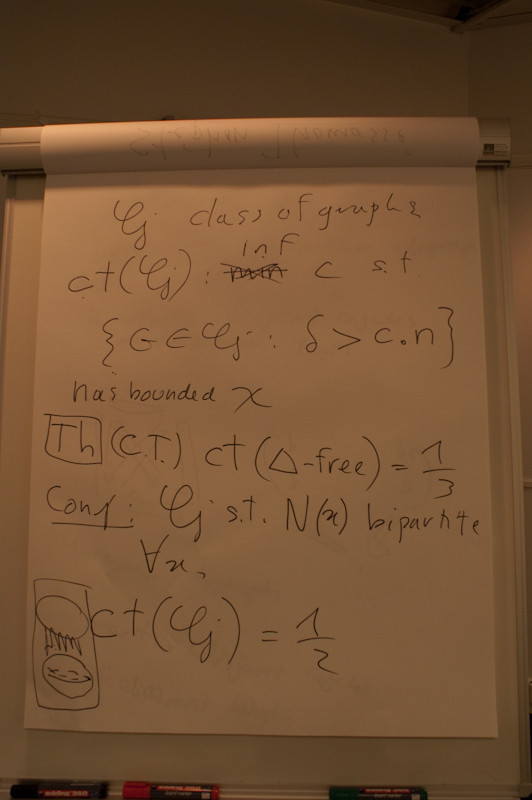 𝒢 class of graphs
inf
ct(𝒢) : min c s.t.
{G ∈ 𝒢 : δ > c.n}
has bounded χ
Th (C.T.) ct(Δ-free) = 1/3
Conj: 𝒢 s.t. N(x) bipartite
∀x,
ct(𝒢) = 1/2